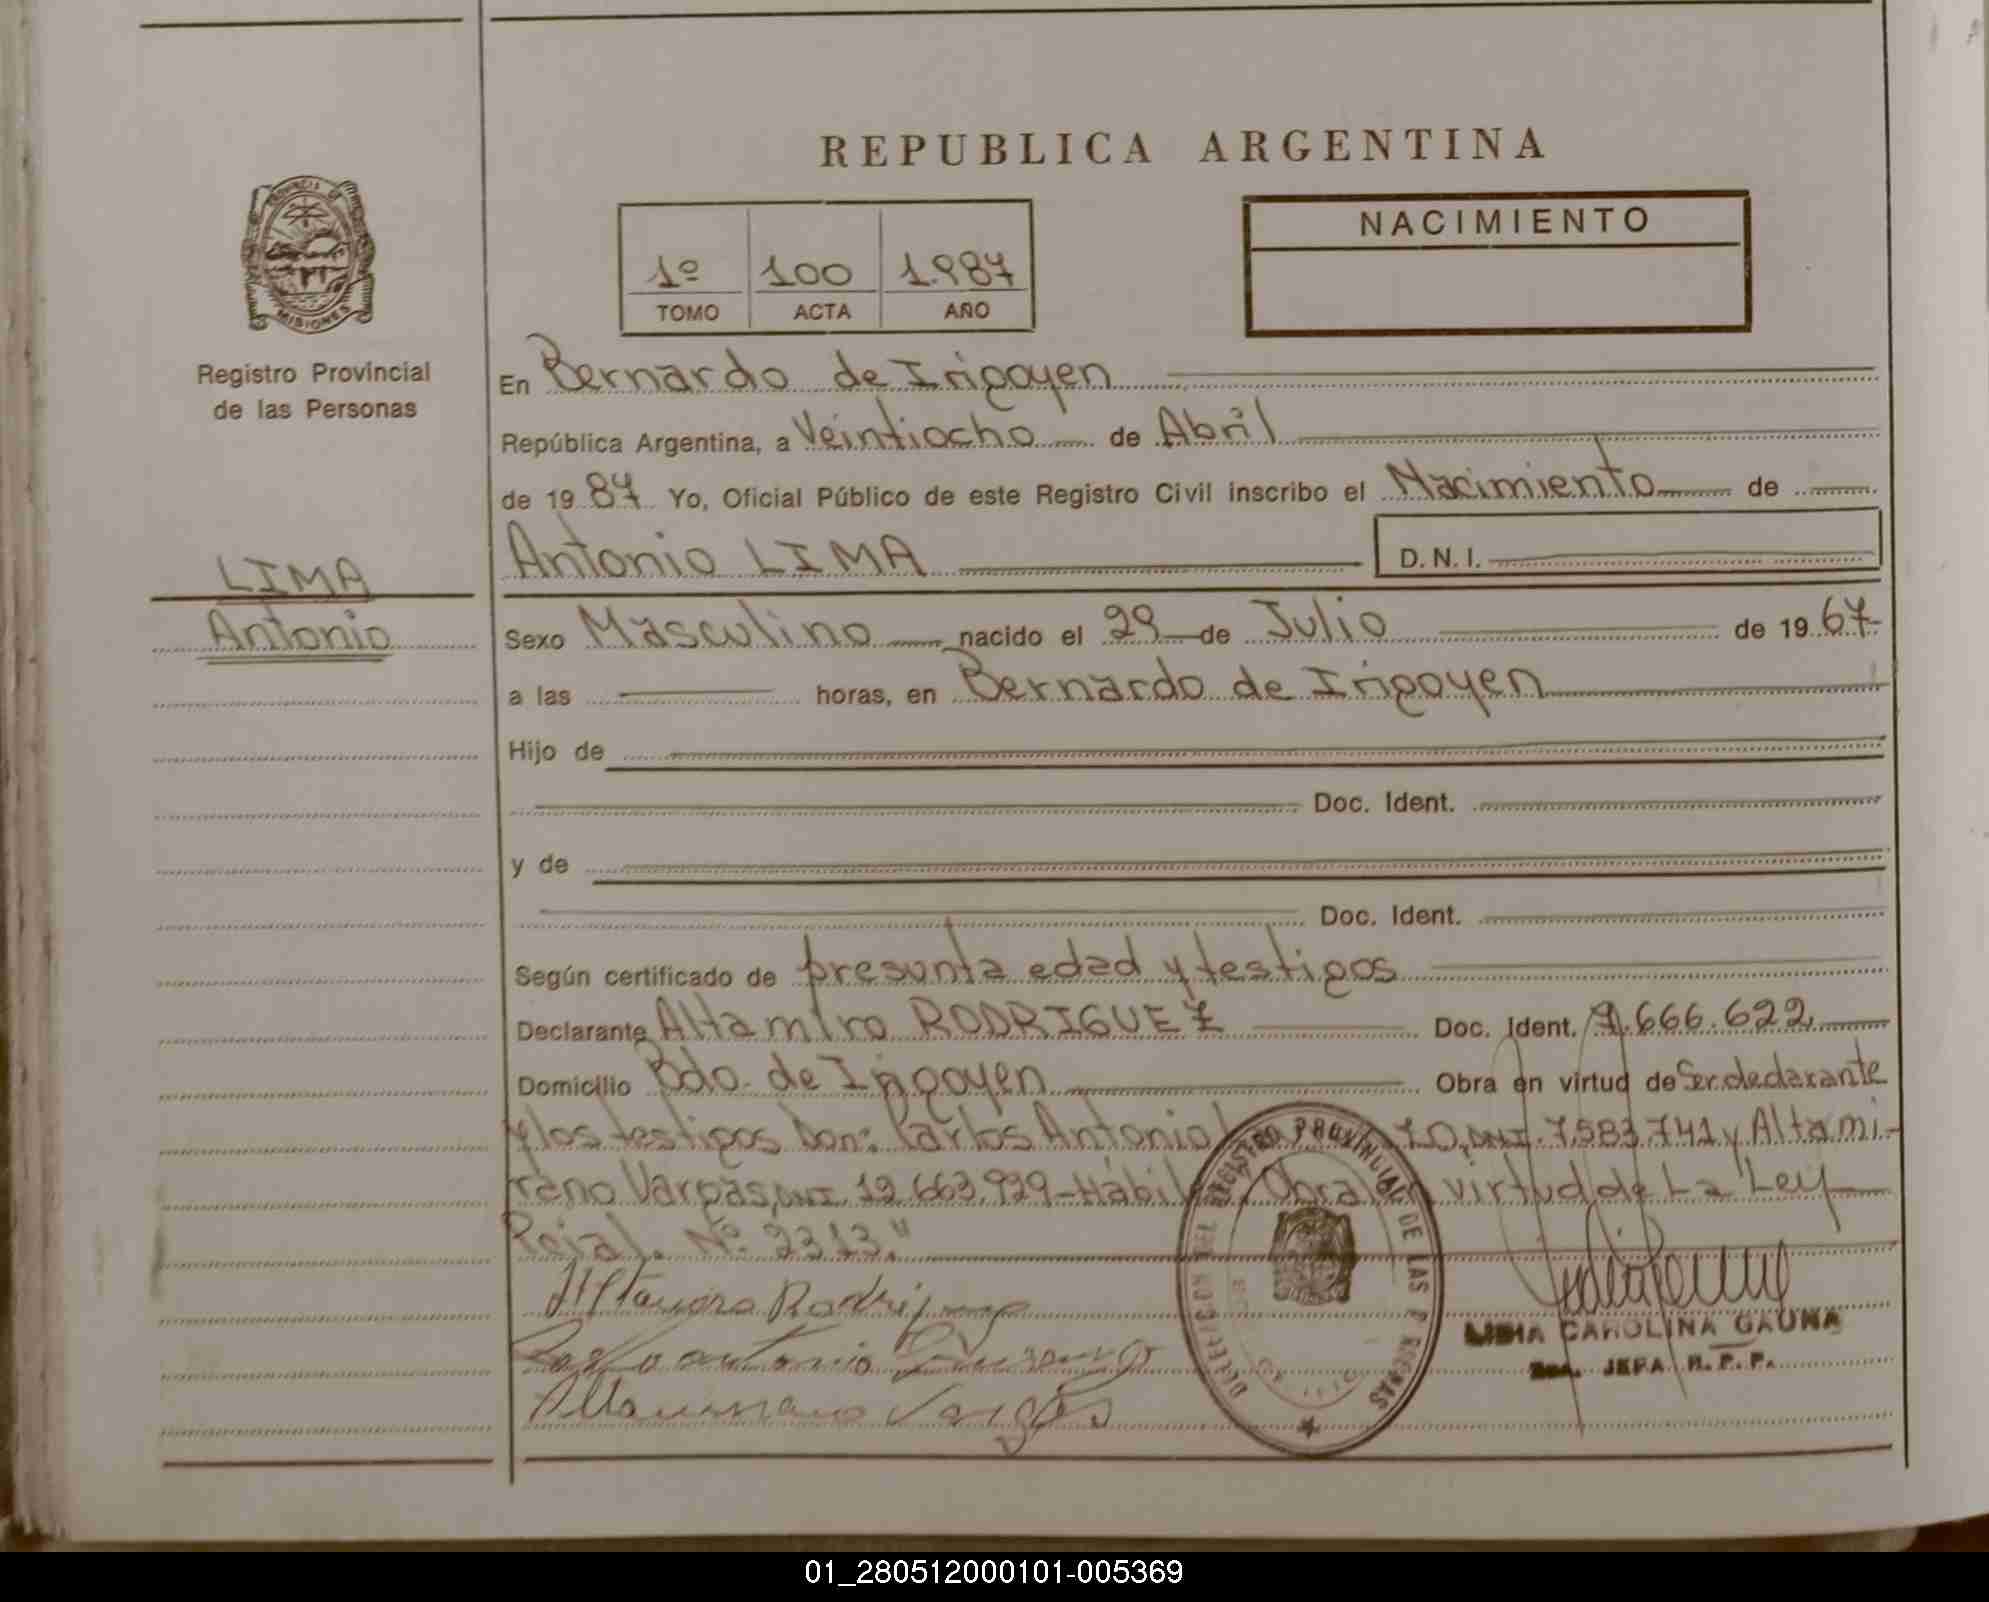 REPUBLICA ARGENTINA
PROVINCIA DE
MISIONES
1º 100 1.987
TOMO ACTA AÑO
NACIMIENTO
Registro Provincial
de las Personas
En Bernardo de Irigoyen
República Argentina, a Veintiocho de Abril
de 19 87 Yo, Oficial Público de este Registro Civil inscribo el Nacimiento de
Antonio LIMA D.N.I.
LIMA
Antonio
Sexo Masculino nacido el 29 de Julio de 19 67
a las horas, en Bernardo de Irigoyen
Hijo de
Doc. Ident.
y de
Doc. Ident.
Según certificado de presunta edad y testigos
Declarante Altamiro RODRIGUEZ Doc. Ident. .666.622
Domicilio Bdo. de Irigoyen Obra en virtud de Ser declarante
y los testigos Don: Carlos Antonio DNI. 7.583.741 y Altami-
rano Vargas, DNI. 12.663.929-Hábil Obra virtud de La Ley
Pcial. Nº 2313."
Rodriguez
Antonio
Vargas
DELEGACION DEL REGISTRO PROVINCIAL DE LAS PERSONAS
LIDIA CAROLINA GAUNA
JEFA R.P.P.
01_280512000101-005369